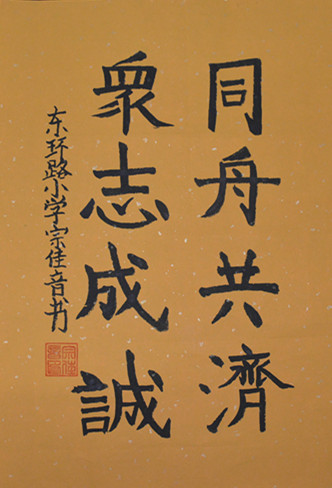 同舟共濟
衆志成誠
东环路小学宗佳音书